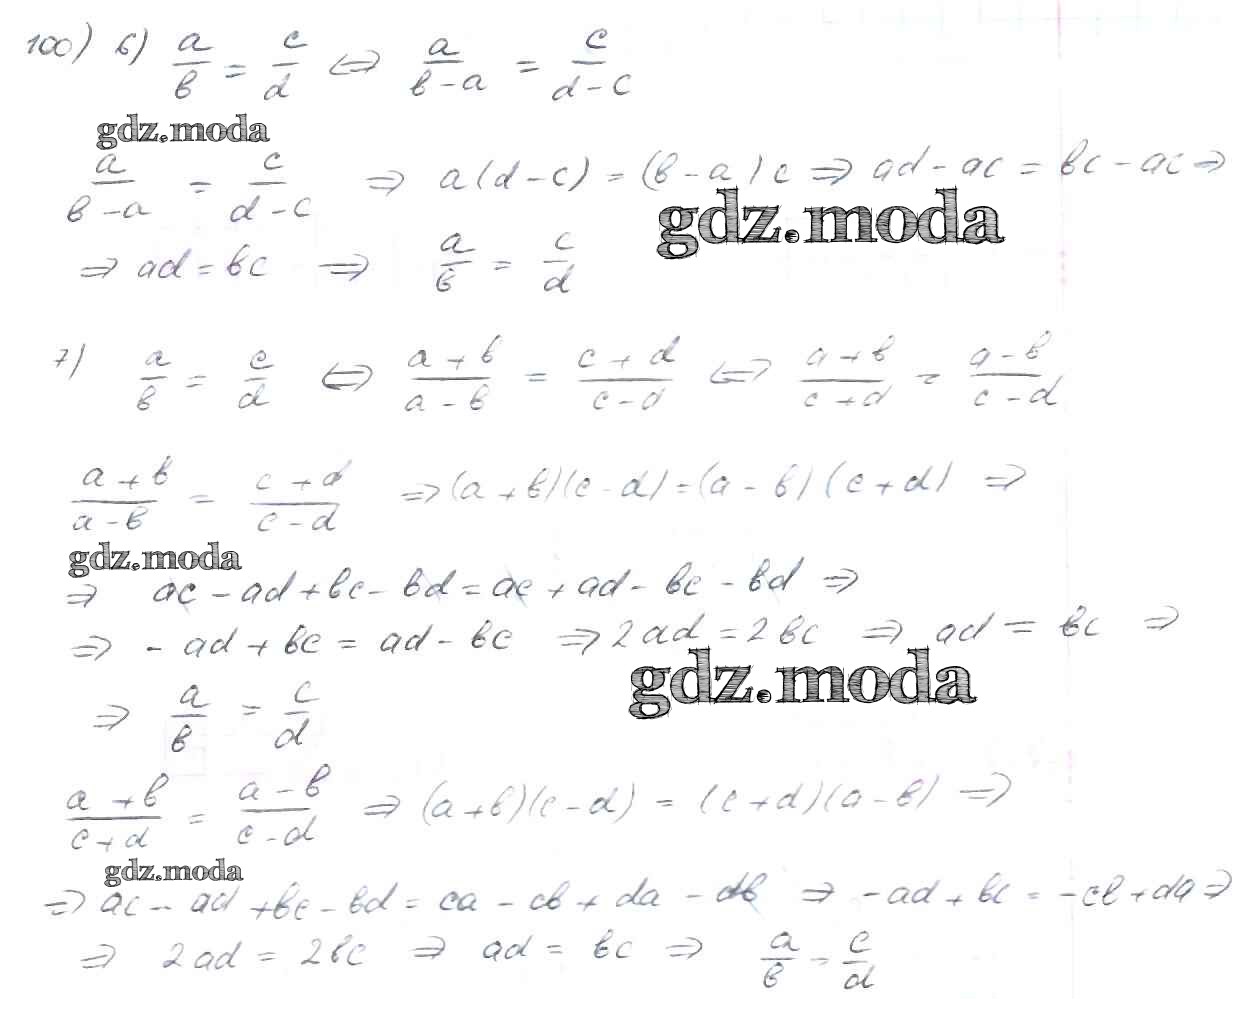 100) 6) a/b = c/d ⇔ a/(b-a) = c/(d-c)
gdz.moda
a/(b-a) = c/(d-c) ⇒ a(d-c) = (b-a)c ⇒ ad-ac = bc-ac ⇒
gdz.moda
⇒ ad = bc ⇒ a/b = c/d
7) a/b = c/d ⇔ (a+b)/(a-b) = (c+d)/(c-d) ⇔ (a+b)/(c+d) = (a-b)/(c-d)
(a+b)/(a-b) = (c+d)/(c-d) ⇒ (a+b)(c-d) = (a-b)(c+d) ⇒
gdz.moda
⇒ ac-ad+bc-bd = ac+ad-bc-bd ⇒
⇒ -ad+bc = ad-bc ⇒ 2ad = 2bc ⇒ ad = bc ⇒
gdz.moda
⇒ a/b = c/d
(a+b)/(c+d) = (a-b)/(c-d) ⇒ (a+b)(c-d) = (c+d)(a-b) ⇒
gdz.moda
⇒ ac-ad+bc-bd = ca-cb+da-db ⇒ -ad+bc = -cb+da ⇒
⇒ 2ad = 2bc ⇒ ad = bc ⇒ a/b = c/d